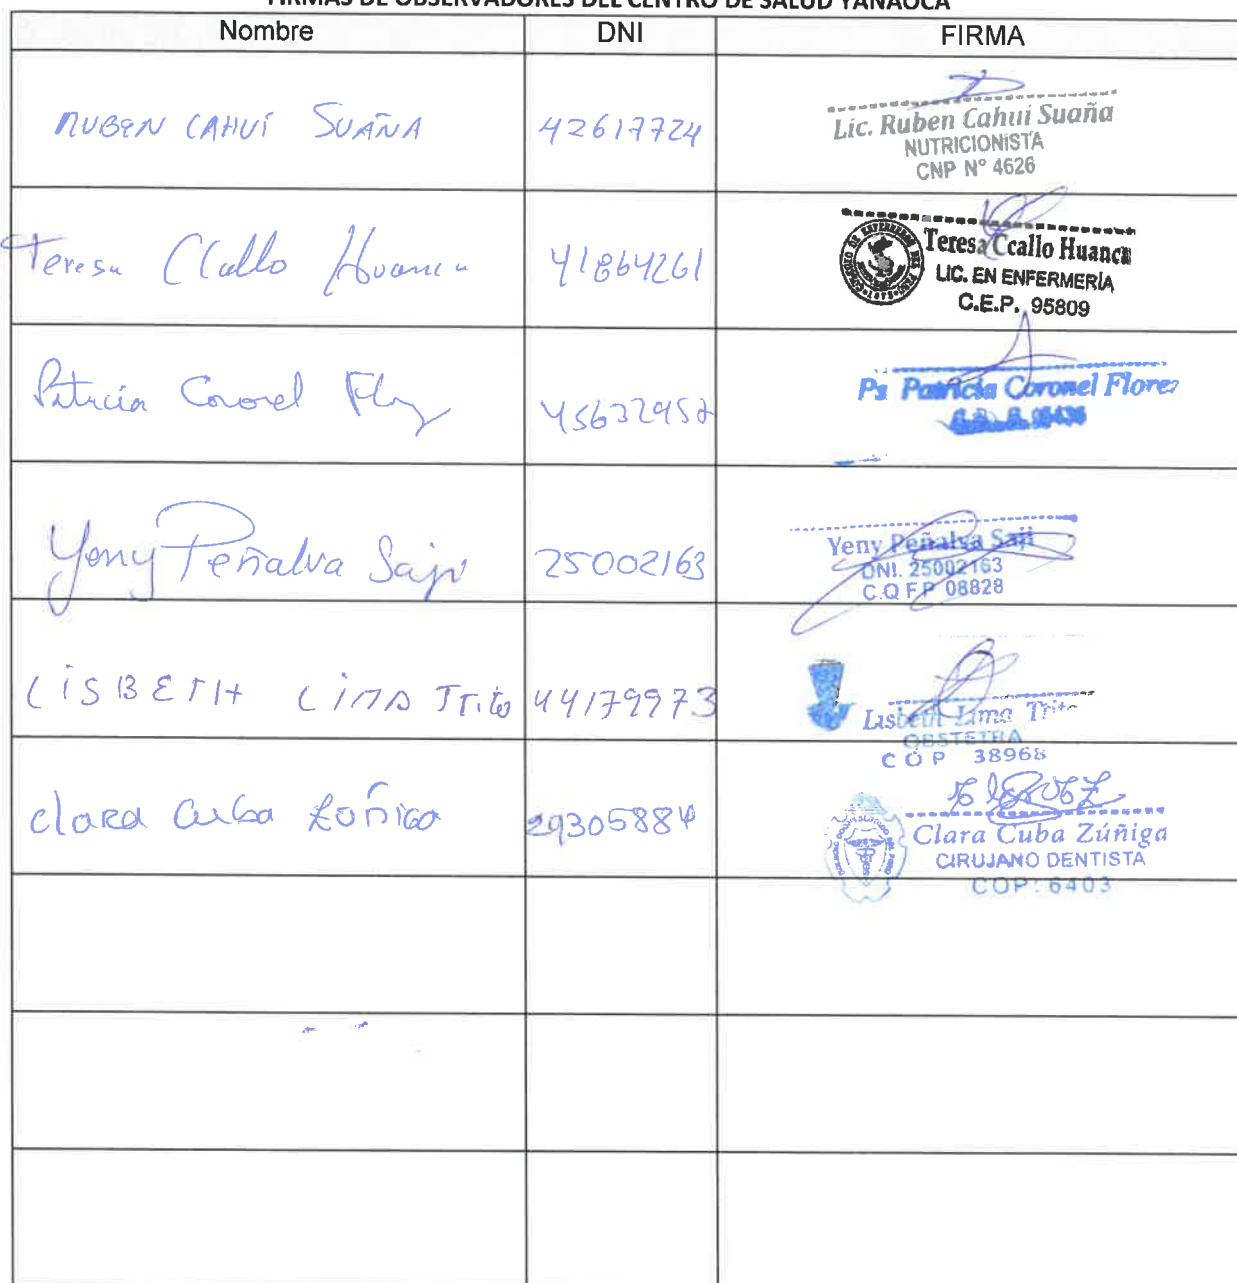 FIRMAS DE OBSERVADORES DEL CENTRO DE SALUD YANAOCA
Nombre DNI FIRMA
RUBEN CAHUI SUAÑA 42617724
Lic. Ruben Cahui Suaña
NUTRICIONISTA
CNP N° 4626
Teresa Ccallo Huanca 41864261
Teresa Ccallo Huanca
LIC. EN ENFERMERÍA
C.E.P. 95809
Patricia Coronel Flores
Ps Patricia Coronel Florez
Yeny Peñalva Saji 25002163
Yeny Peñalva Saji
DNI. 25002163
C.Q.F.P 08828
LISBETH LIMA Trito 44179973
Lisbeth Lima Trito
OBSTETRA
COP 38968
Clara Cuba Zúñiga 29305884
Clara Cuba Zúñiga
CIRUJANO DENTISTA
COP: 6403